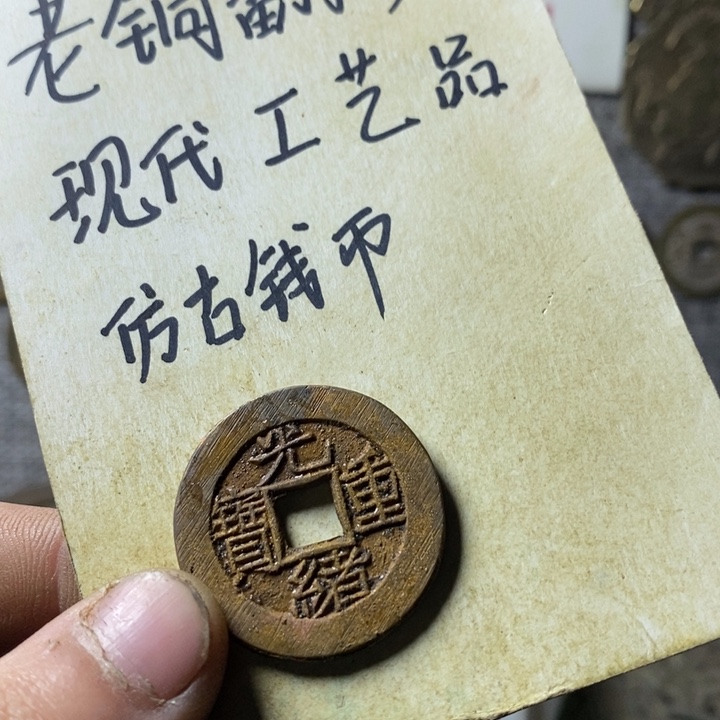 老铜翻
现代工艺品
仿古钱币
光緒重寶